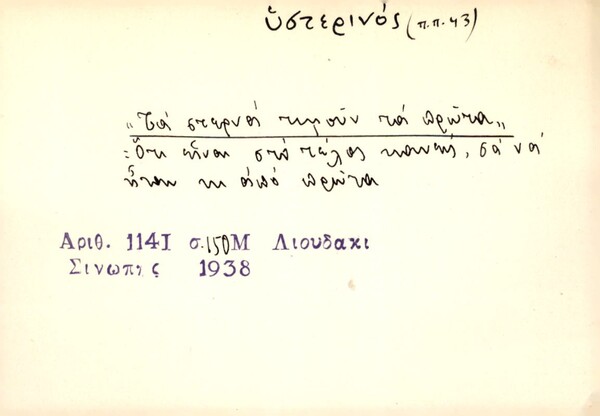 ὑστερινός (π.π. 43)
„Τά στερνά τιμοῦν τά πρῶτα„
: Ὅτι εἶναι στό τέλος κανείς, σά νά
ἦταν κι ἀπό πρῶτα
Αριθ. 1141 σ. 150 Μ Λιουδακι
Σινωπης 1938